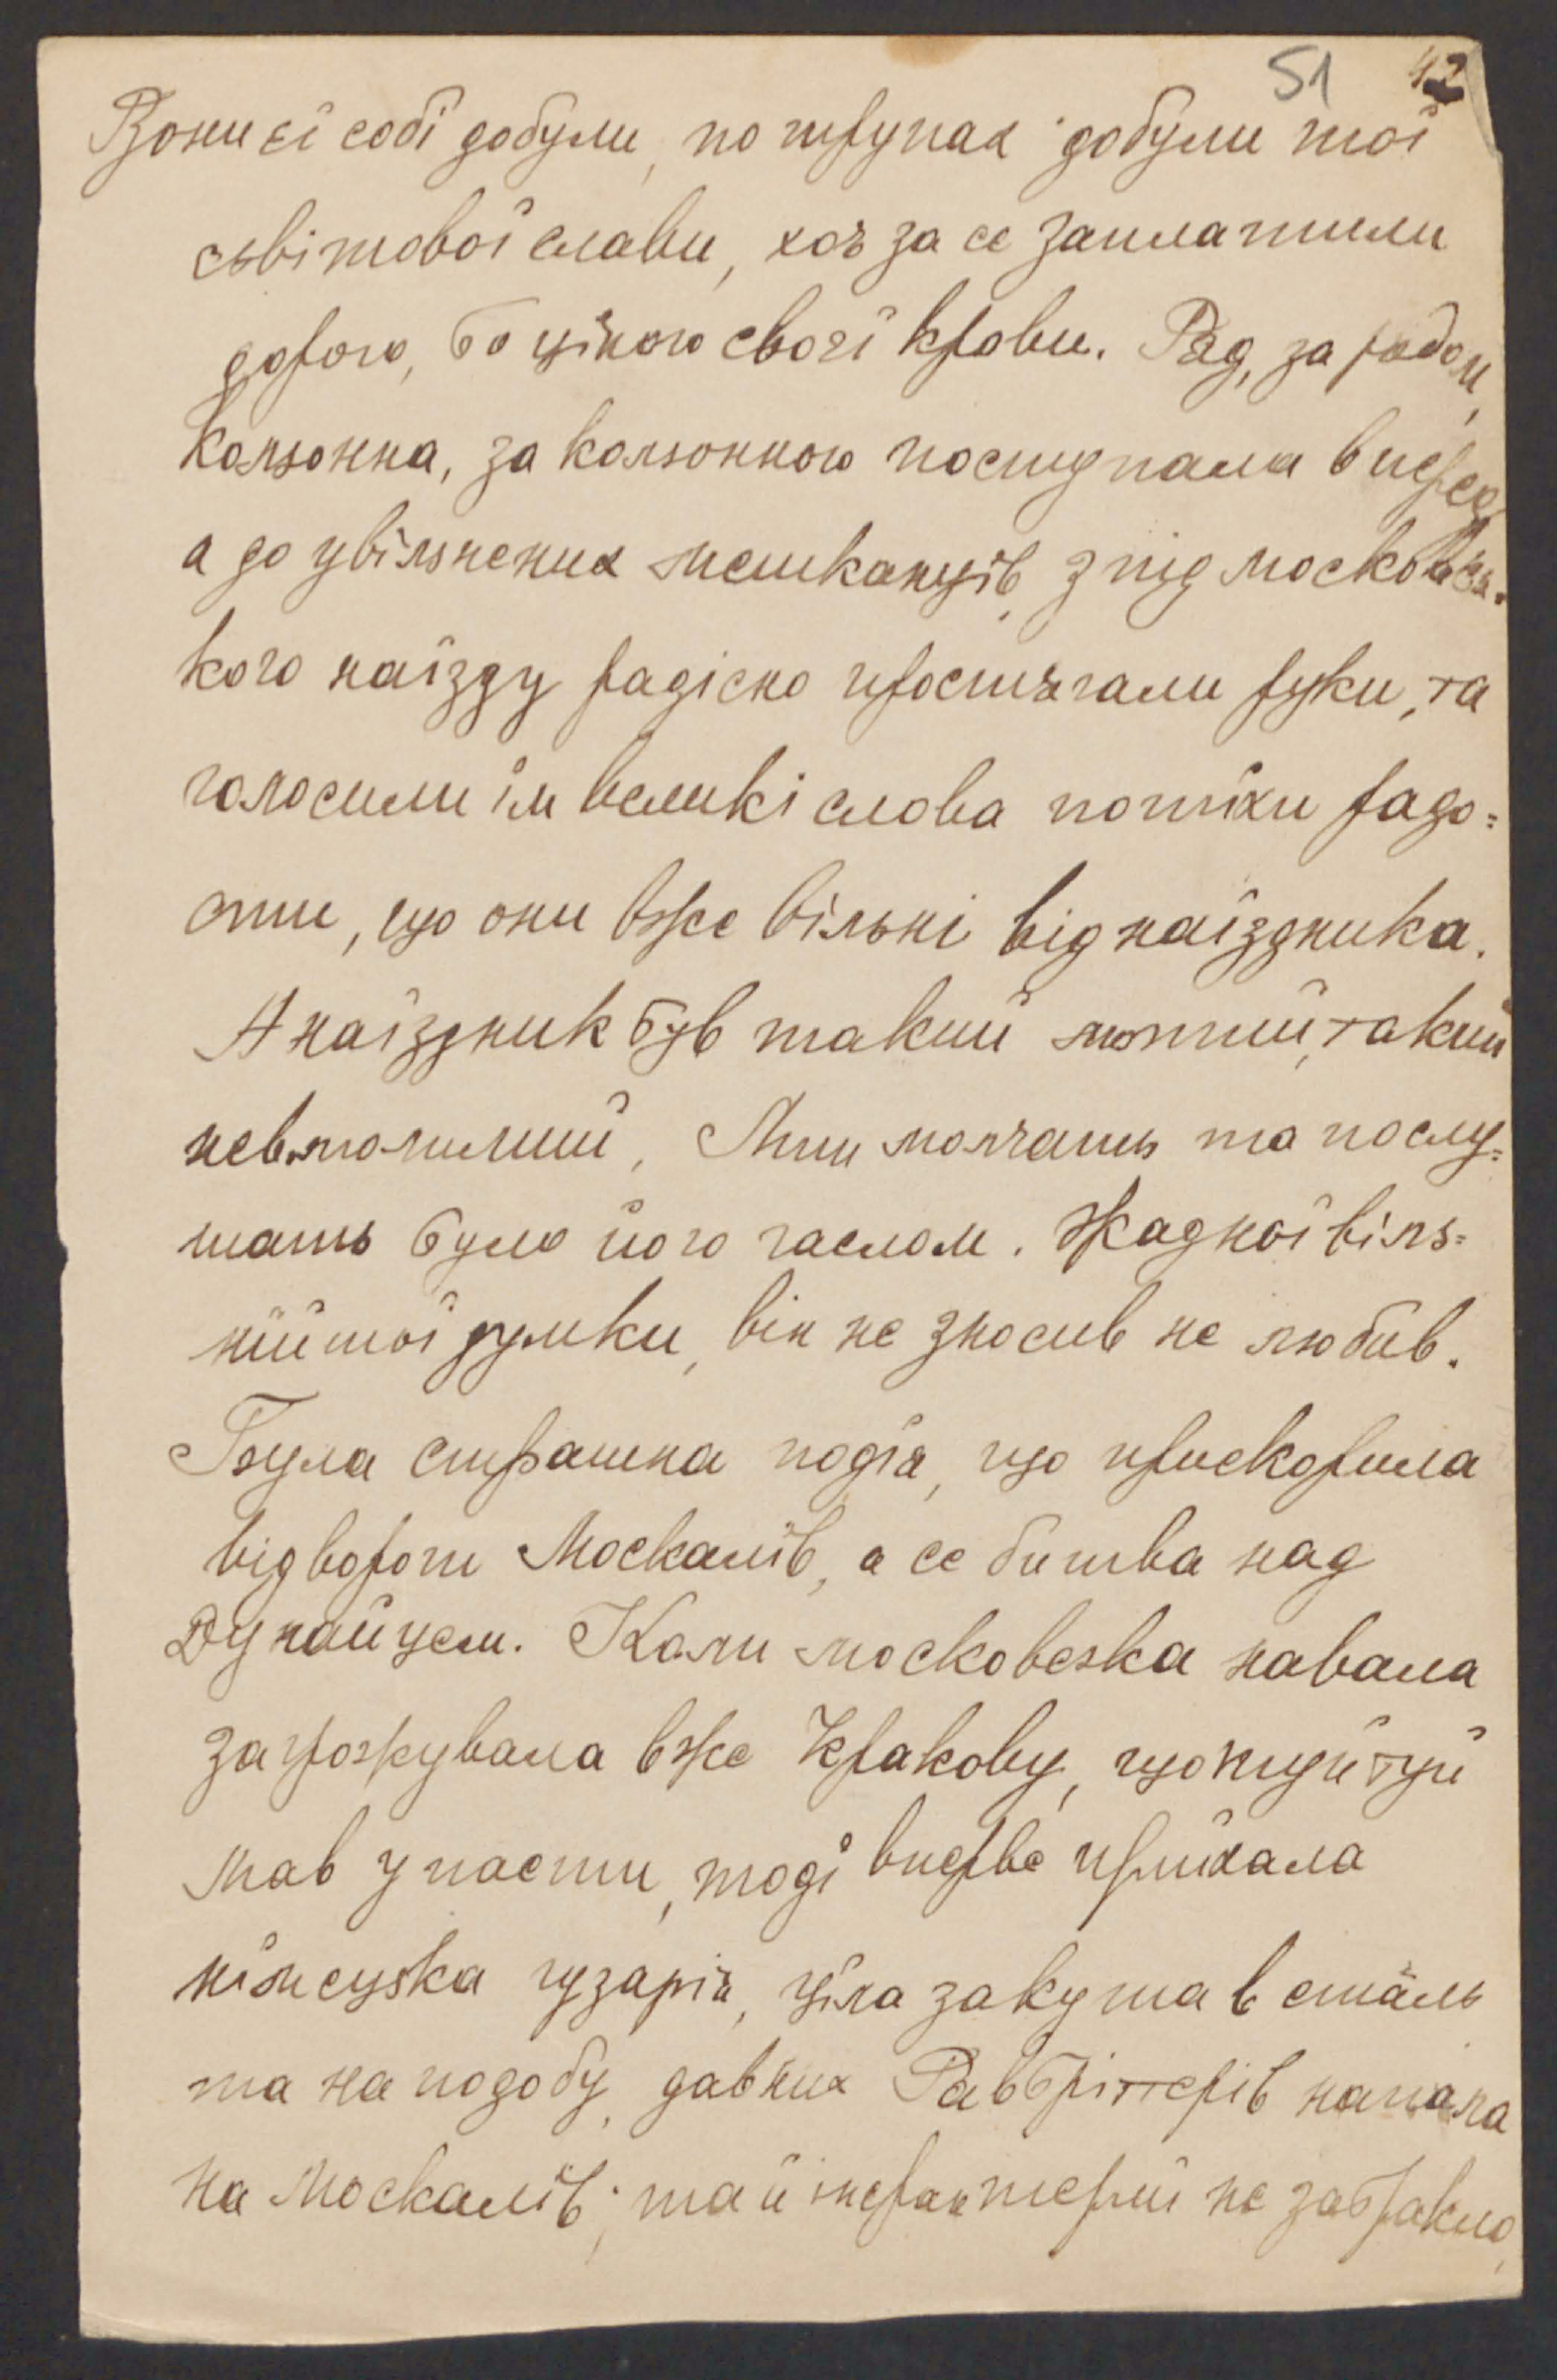 51 42
Вони єї собі добули, по трупах добули тої
сьвітової слави, хоч за се заплатили
дорого, бо ціною своєї крови. Ряд, за рядом,
кольонна, за кольонною поступала вперед,
а до увільнених мешканців, з під московсь-
кого наїзду радісно простягали руки, та
голосили їм великі слова потіхи радо=
сти, що они вже вільні від наїздника.
А наїздник був такий лютий, такий
невмолимий, Лиш молчать та послу=
шать було його гаслом. Жадної віль=
нійшої думки, він не зносив не любив.
Була страшна подія, що прискорила
відворот Москалів, а се битва над
Дунайцем. Коли московська навала
загрожувала вже Кракову, що туй туй
мав упасти, тоді вперве приїхала
німецька гузарія, ціла закута в сталь
та на подобу, давних Равбрітерів напала
на Москалів; та й інфантерії не забракло,